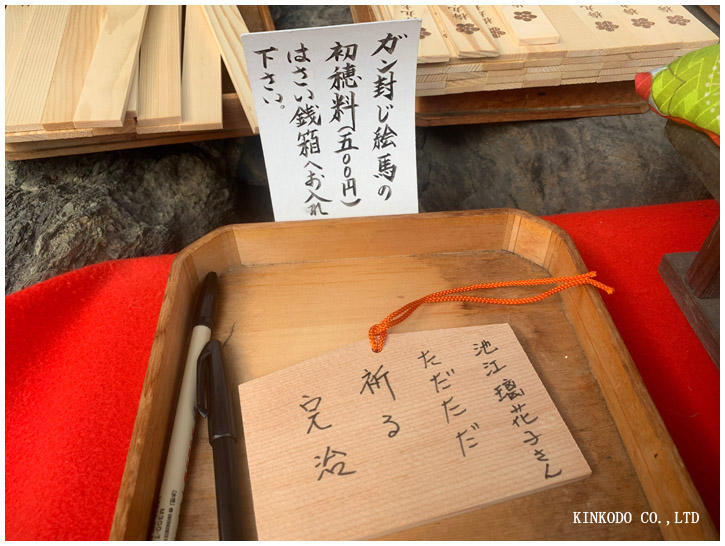 ガン封じ絵馬の
初穂料(五〇〇円)
はさい銭箱へお入れ
下さい。
池江 璃花子さん
ただただ
祈る
完治
KINKODO CO.,LTD